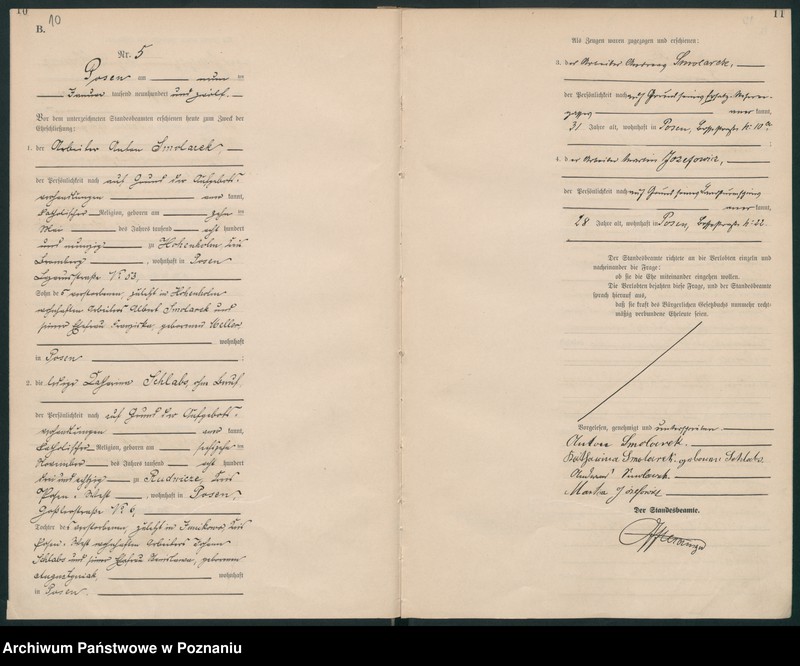 10
B.
10
Nr. 5
Posen am neun ten
Januar tausend neunhundert und zwölf.
Vor dem unterzeichneten Standesbeamten erschienen heute zum Zweck der
Eheschließung:
1. der Arbeiter Anton Smolarek,
der Persönlichkeit nach auf Grund der Aufgebots-
verhandlungen aner kannt,
katholischer Religion, geboren am zehn ten
Mai des Jahres tausend acht hundert
und neunzig zu Hohenholm, Kreis
Bromberg, wohnhaft in Posen
straße Nr. 53,
Sohn des verstorbenen, zuletzt in Hohenholm
wohnhaften Arbeiters Albert Smolarek und
seiner Ehefrau Franziska, geborenen Weller,
wohnhaft
in Posen;
2. die ledige Katharina Schlabs, ohne Beruf,
der Persönlichkeit nach auf Grund der Aufgebots-
verhandlungen aner kannt,
katholischer Religion, geboren am sechzehn ten
November des Jahres tausend acht hundert
drei und achtzig zu Rudnicze, Kreis
Posen-West, wohnhaft in Posen,
Goßlerstraße Nr. 6,
Tochter des verstorbenen, zuletzt in Junikowo, Kreis
Posen-West wohnhaften Arbeiters Johann
Schlabs und seiner Ehefrau, geborenen
wohnhaft
in Posen.
11
Als Zeugen waren zugezogen und erschienen:
3. der Arbeiter Andreas Smolarek,
der Persönlichkeit nach auf Grund seines Ersatz-Reserve-
passes aner kannt,
31 Jahre alt, wohnhaft in Posen, Nr. 10a.;
4. der Arbeiter Martin Josefowicz,
der Persönlichkeit nach auf Grund seines
aner kannt,
28 Jahre alt, wohnhaft in Posen, Nr. 22.
Der Standesbeamte richtete an die Verlobten einzeln und
nacheinander die Frage:
ob sie die Ehe miteinander eingehen wollen.
Die Verlobten bejahten diese Frage, und der Standesbeamte
sprach hierauf aus,
daß sie kraft des Bürgerlichen Gesetzbuchs nunmehr recht-
mäßig verbundene Eheleute seien.
Vorgelesen, genehmigt und unterschrieben
Anton Smolarek.
Katharina Smolarek geborene Schlabs.
Andreas Smolarek.
Josefowicz
Der Standesbeamte.
Archiwum Państwowe w Poznaniu